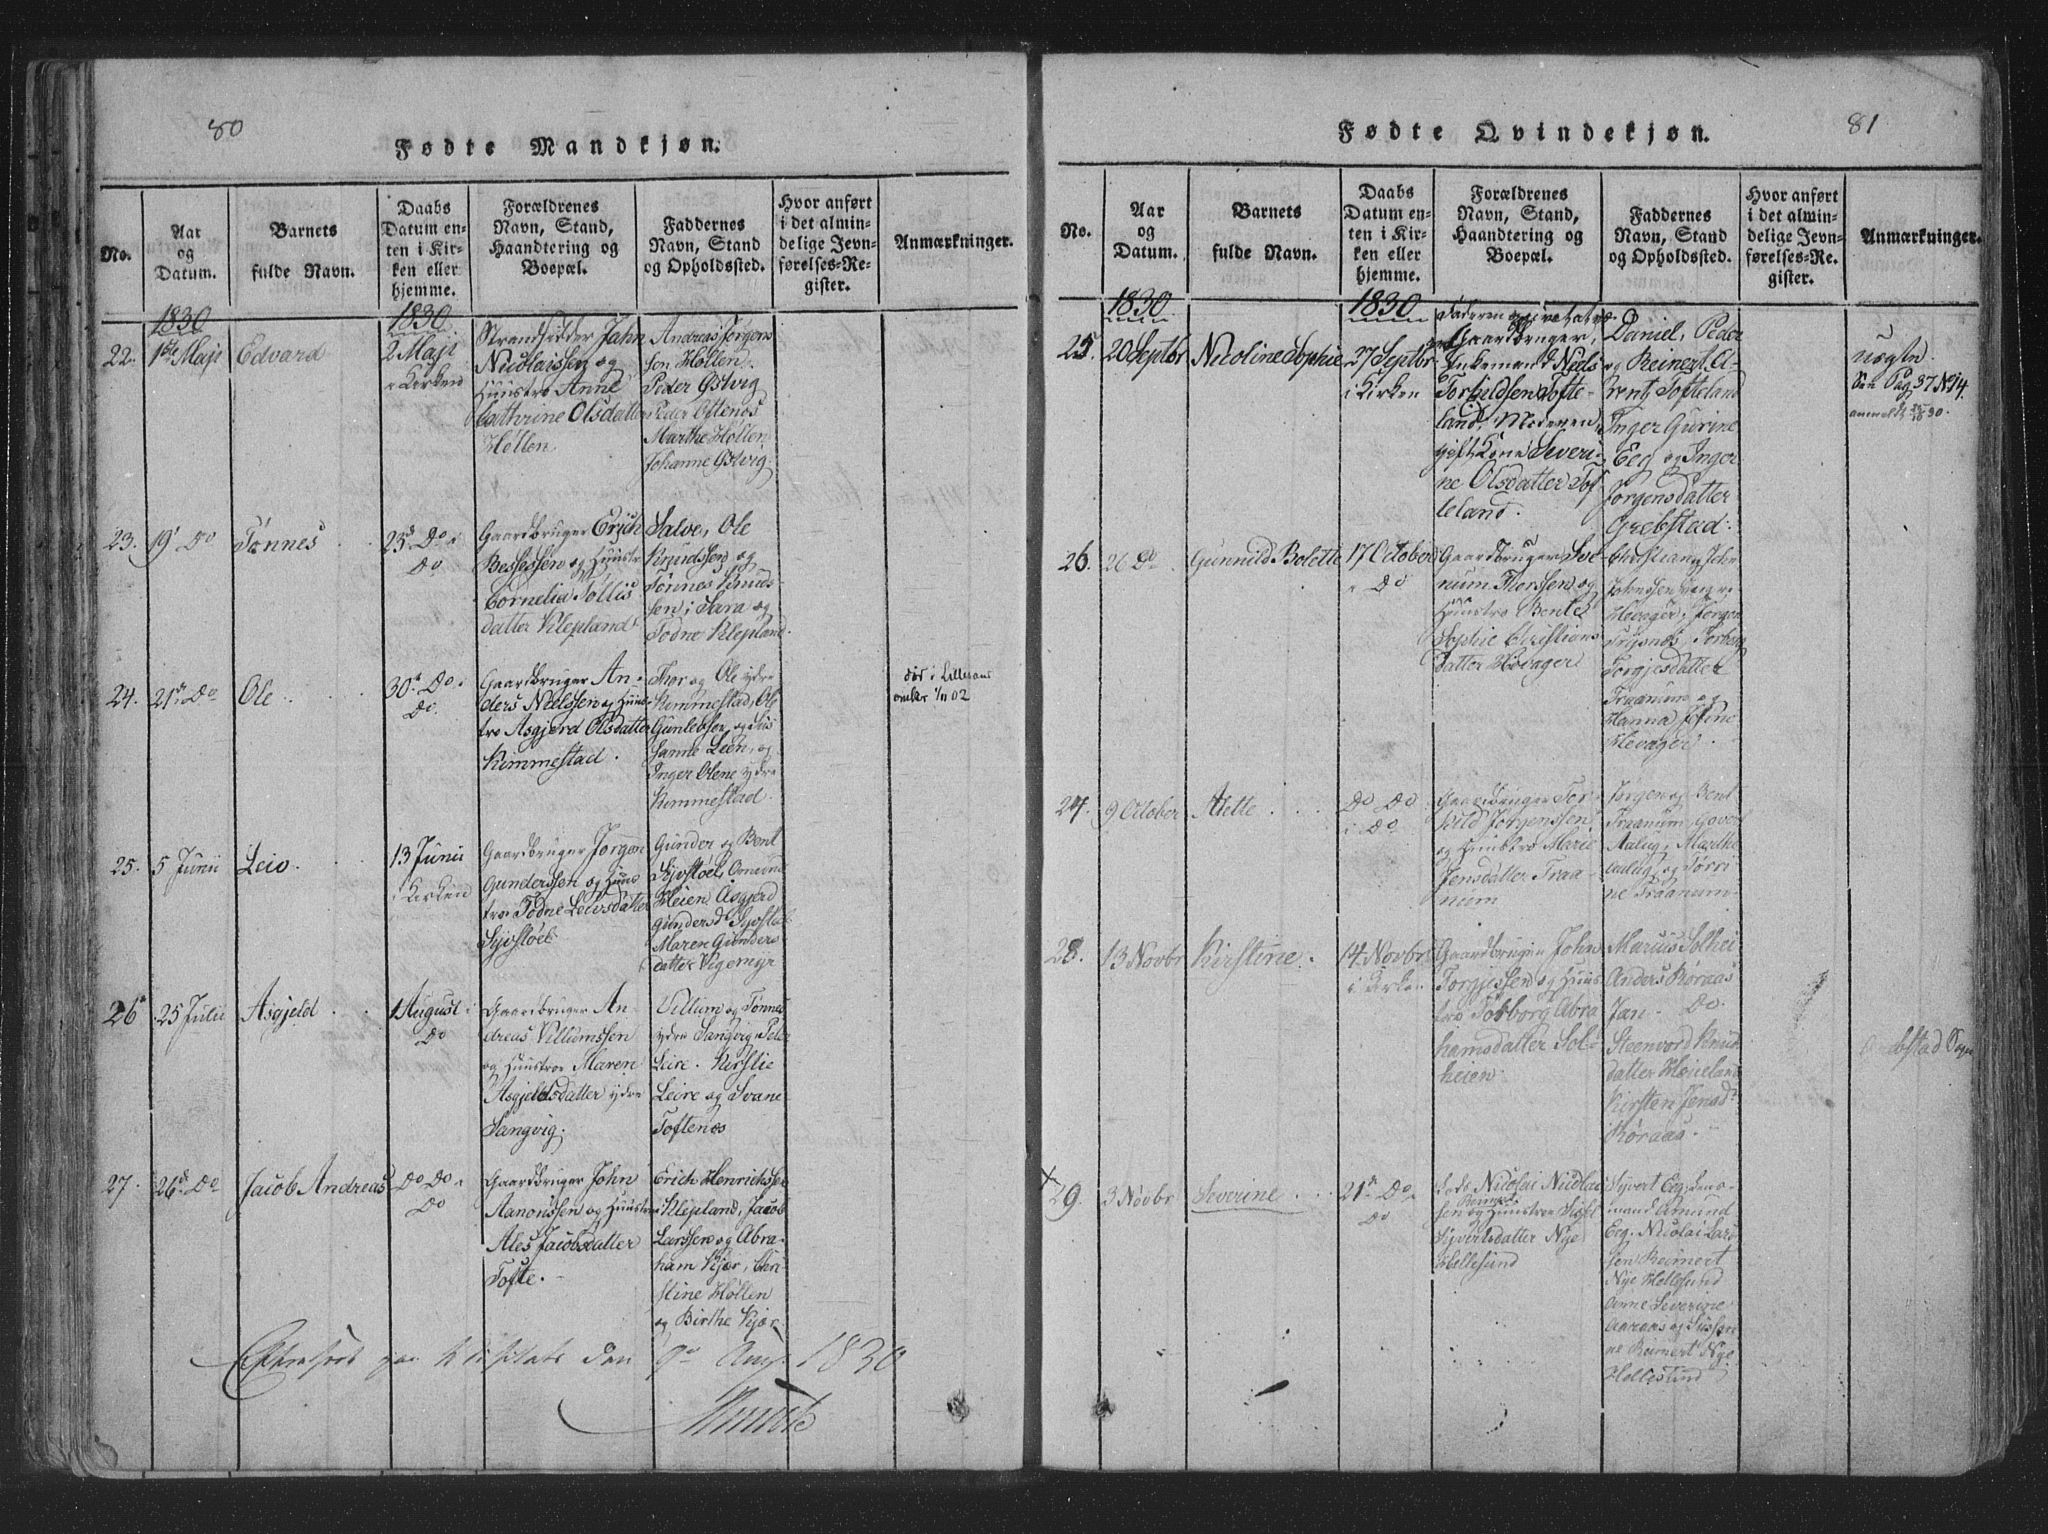 80
Fødte Mandkjøn.
No.
Aar
og
Datum.
Barnets
fulde Navn.
Daabs
Datum en-
ten i Kir-
ken eller
hjemme.
Forældrenes
Navn, Stand,
Haandtering og
Boepæl.
Faddernes
Navn, Stand
og Opholdssted.
Hvor anført
i det almin-
delige Jevn-
førelses-Re-
gister.
Anmærkninger.
1830
1830
22.
1ste Maji
Edvard
2 Maji
i Kirken
Strandsidder Jahn
Nicolaissen og
Huustro Anne
Cathrine Olsdatter
Høllen
Andreas Jørgens
sen Høllen,
Peder Østvig
Peder Oftenes
Marthe Høllen
Johanne Østvig
23.
19' Do
Tønnes
23d Do i
Do
Gaardbruger Erich
Bessessen og Huustro
Cornelia Tøllis
datter Klepland
Salve, Ole
Knudssen og
Tønnes Knuds-
sen, Sara og
Todne Klepland.
24.
21de Do
Ole
30te Do i
Do
Gaardbruger An-
ders Nielssen og Huus-
tro Asgjerd Olsdatter
Kimmestad.
Thor og Ole ydre
Kimmestad, Ole
Gunlebsen og Sus
sanne Leen, og
Inger Olene ydre
Kimmestad.
død i Lillesand
1/11 02
25.
5 Junii
Leiv.
13 Junii
i Kirken
Gaardbruger Jørgen
Gunderssen og Huus
tro Todne Leivsdatter
Syvstøel.
Gunder og Bent
Syvstøel, Omund
Heien, Asgjerd
Gundersd Syvstøel
Maren Gunders
datter Vigemyr
26
25 Julii
Asgjeld
1 August i
Do
Gaardbruger An-
dreas Villumssen
og Huustroe Maren
Asgjeldsdatter ydre
Langvig.
Villum og Tønnes
ydre Langvig, Peder
Leire. Kirstie
Leire og Svane
Toftenes
27.
26de Do
Jacob Andreas
Do Do i
Do
Gaardbruger John
Aanonssen og Huustroe
Ales Jacobsdatter
Tofte.
Erich Henrichssen
Klepland, Jacob
Larssen og Abra-
ham Kjær, Chri-
stine Høllen
og Birthe Kjær.
Efterseet paa den 9de Aug. 1830
81
Fødte Qvindekjøn.
No.
Aar
og
Datum.
Barnets
fulde Navn.
Daabs
Datum en-
ten i Kir-
ken eller
hjemme.
Forældrenes
Navn, Stand,
Haandtering og
Boepæl.
Faddernes
Navn, Stand
og Opholdssted.
Hvor anført
i det almin-
delige Jevn-
førelses-Re-
gister.
Anmærkninger.
1830
1830
25.
20 Septbr
Nicoline Sophie
27 Septbr
i Kirken
Faderen
Gaardbruger,
Enkemand Niels
Torkildsen Tofte-
land, Moderen
gift Kone Severi-
ne Olsdatter Tof-
teland.
Daniel, Peder
og Reinert A-
rentz Tofteland
Inger Gurine
Eeg og Inger
Jørgensdatter
Grebstad.
uægte.
See Pag 37 N 14.
anmeldt 30.
26.
26 Do
Gunnild Bolette
17 October
i Do
Gaardbruger Sve-
num Thorssen og
Huustro Bente
Sophie Christians
datter Høvager
Christian, John
Johnssen
Hevager, Jørgen
Trysnes, Torborg
Torgjesdatter
Traanum og
Hanna Josine
Hevager.
27.
9 October
Mette
Do Do
i Do
Gaardbruger Tor-
kild Jørgenssen
og Huustro Marie
Jensdatter Traa
num
Jørgen og Bent
Traanum, Govert
Aalug, Marthe
Aalug og Tørri
ne Traanum.
28.
13 Novbr
Kirstine.
14 Novbr
i Kirken
Gaardbruger John
Torgjessen og Huus
tro Torborg Abra
hamsdatter Sol-
heien
Marius Solhei
Anders Røraas
Jan Do
Steenvord Knud
datter Høieland
Kirsten Jensd
Røraas.
Sogn
29.
3 Novbr
Severine
21de Do
Do
Lods Nicolai Nicolai
sen Reinert og Huustroe Sissel
Syvertsdatter Nye
Hellesund
Syvert Eeg,
mand Amund
Eeg. Nicolai Lars
sen Reinert
Nye Hellesund
Anne Severine
Aaraas og Susse
ne Reinert Nye
Hellesund